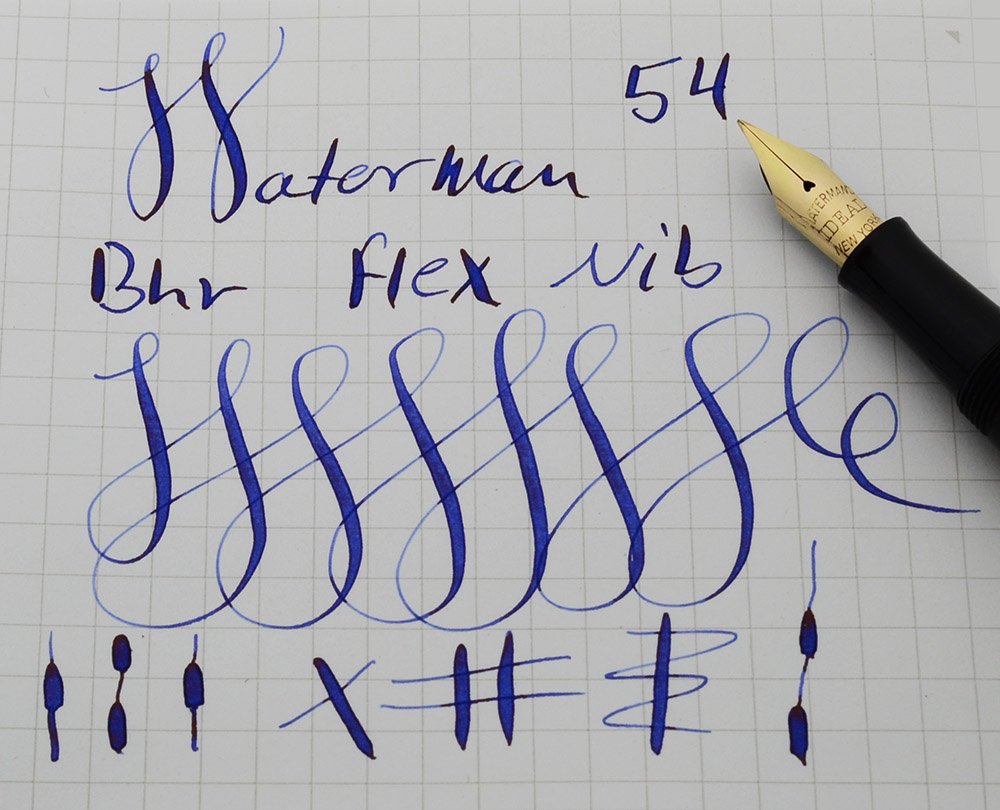 Waterman 54
Bhr flex Nib
WATERMAN'S
IDEAL
NEW YORK